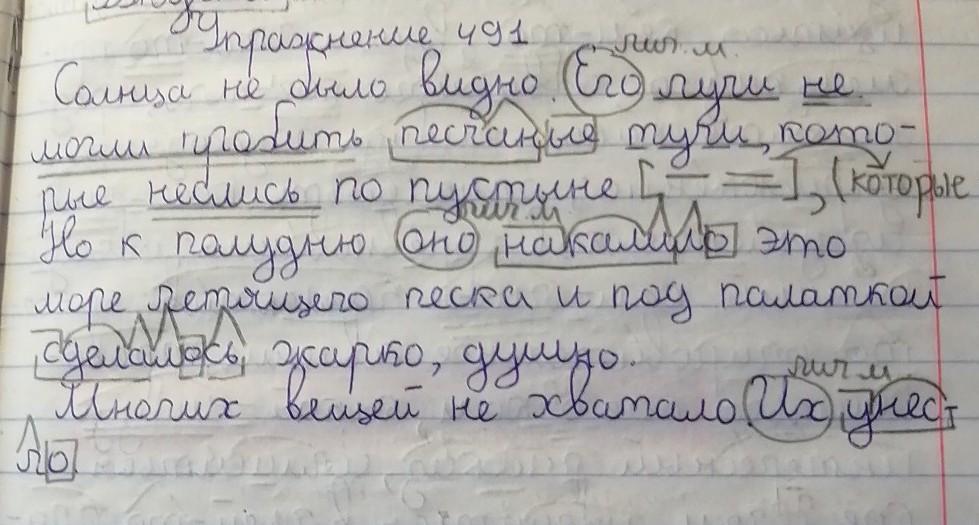 Упражнение 491
лич. м.
Солнца не было видно. Его лучи не
могли пробить песчаные тучи, кото-
рые неслись по пустыне [ ], (которые
лич. м
Но к полудню оно накалило это
море летящего песка и под палаткой
сделалось жарко, душно.
лич м.
Многих вещей не хватало. Их унес
ло